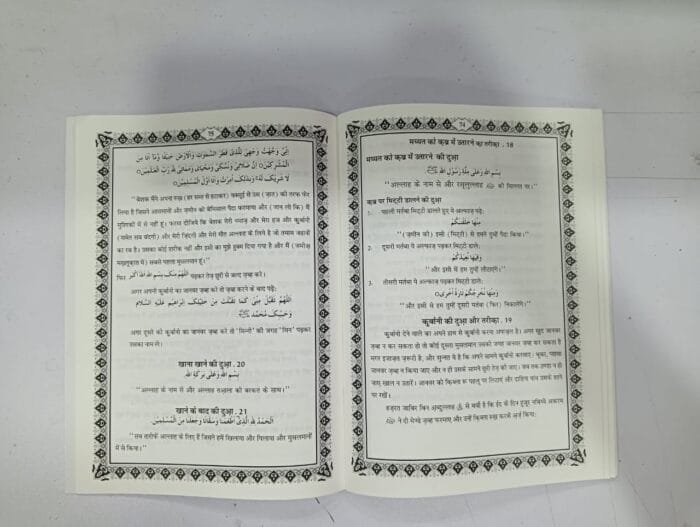 74
मय्यत को क़ब्र में उतारने का तरीक़ा. 18
मय्यत को क़ब्र में उतारने की दुआ
بِسْمِ اللّٰهِ وَعَلٰى مِلَّةِ رَسُوْلِ اللّٰهِ ﷺ
"अल्लाह के नाम से और रसूलुल्लाह ﷺ की मिल्लत पर।"
क़ब्र पर मिट्टी डालने की दुआ
1. पहली मर्तबा मिट्टी डालते हुए ये अल्फ़ाज़ पढ़े:
مِنْهَا خَلَقْنٰكُمْ
"(ज़मीन की) इसी से हमने तुम्हें पैदा किया।"
2. दूसरी मर्तबा ये अल्फ़ाज़ पढ़कर मिट्टी डाले:
وَفِيْهَا نُعِيْدُكُمْ
"और इसी में हम तुम्हें लौटाएंगे।"
3. तीसरी मर्तबा ये अल्फ़ाज़ पढ़कर मिट्टी डाले:
وَمِنْهَا نُخْرِجُكُمْ تَارَةً اُخْرٰى○
"और इसी से हम तुम्हें दूसरी बार (फिर) निकालेंगे।"
कुर्बानी की दुआ और तरीक़ा. 19
कुर्बानी देने वाले का अपने हाथ से कुर्बानी करना अफ़ज़ल है। अगर ख़ुद जानवर
ज़ब्ह न कर सकता हो तो कोई दूसरा मुसलमान उसकी जगह जानवर ज़ब्ह कर सकता है
मगर इजाज़त ज़रूरी है, और सुन्नत ये है कि अपने सामने कुर्बानी करवाए। भूका, प्यासा
जानवर ज़ब्ह न किया जाए और न ही उसके सामने छुरी तेज़ की जाए। जब तक ठण्डा न हो
जाए खाल न उतारें। जानवर को क़िब्ला रू पहलू पर लिटाएं और दाहिना पांव उसके शाने
पर रखें।
हज़रत जाबिर बिन अब्दुल्लाह से मर्वी है कि ईद के दिन हुज़ूर नबिय्ये अकरम
ﷺ ने दो मेण्ढे ज़ब्ह फ़रमाए और उन्हें क़िब्ला रुख़ करके अर्ज़ किया:
75
اِنِّىْ وَجَّهْتُ وَجْهِىَ لِلَّذِىْ فَطَرَ السَّمٰوٰتِ وَالْاَرْضَ حَنِيْفًا وَّمَا اَنَا مِنَ
الْمُشْرِكِيْنَ○ اِنَّ صَلَاتِىْ وَنُسُكِىْ وَمَحْيَاىَ وَمَمَاتِىْ لِلّٰهِ رَبِّ الْعٰلَمِيْنَ○
لَا شَرِيْكَ لَهٗ وَبِذٰلِكَ اُمِرْتُ وَاَنَا اَوَّلُ الْمُسْلِمِيْنَ○
"बेशक मैंने अपना रुख़ (हर सम्त से हटाकर) यक्सूई से उस (ज़ात) की तरफ़ फेर
लिया है जिसने आसमानों और ज़मीन को बेमिसाल पैदा फरमाया और (जान लो कि) मैं
मुश्रिकों में से नहीं हूं। फरमा दीजिये कि बेशक मेरी नमाज़ और मेरा हज और कुर्बानी
(समेत सब बंदगी) और मेरी ज़िंदगी और मेरी मौत अल्लाह के लिये है जो तमाम जहानों
का रब है। उसका कोई शरीक नहीं और इसी का मुझे हुक्म दिया गया है और मैं (जमीअ
मख़्लूक़ात में) सबसे पहला मुसलमान हूं।"
फिर اَللّٰهُمَّ مِنْكَ بِسْمِ اللّٰهِ اَللّٰهُ اَكْبَرُ पढ़कर तेज़ छुरी से जल्द ज़ब्ह करे।
अगर अपनी कुर्बानी का जानवर ज़ब्ह करे तो ज़ब्ह करने के बाद पढ़े:
اَللّٰهُمَّ تَقَبَّلْ مِنِّىْ كَمَا تَقَبَّلْتَ مِنْ خَلِيْلِكَ اِبْرَاهِيْمَ عَلَيْهِ السَّلَام
وَحَبِيْبِكَ مُحَمَّدٍ ﷺ
अगर दूसरे की कुर्बानी का जानवर ज़ब्ह करे तो 'मिन्नी' की जगह 'मिन' पढ़कर
उसका नाम ले।
खाना खाने की दुआ. 20
بِسْمِ اللّٰهِ وَعَلٰى بَرَكَةِ اللّٰهِ
"अल्लाह के नाम से और अल्लाह तआला की बरकत के साथ।"
खाने के बाद की दुआ. 21
اَلْحَمْدُ لِلّٰهِ الَّذِىْ اَطْعَمَنَا وَسَقَانَا وَجَعَلَنَا مِنَ الْمُسْلِمِيْنَ
"सब तारीफें अल्लाह के लिए हैं जिसने हमें खिलाया और पिलाया और मुसलमानों
में से किया।"